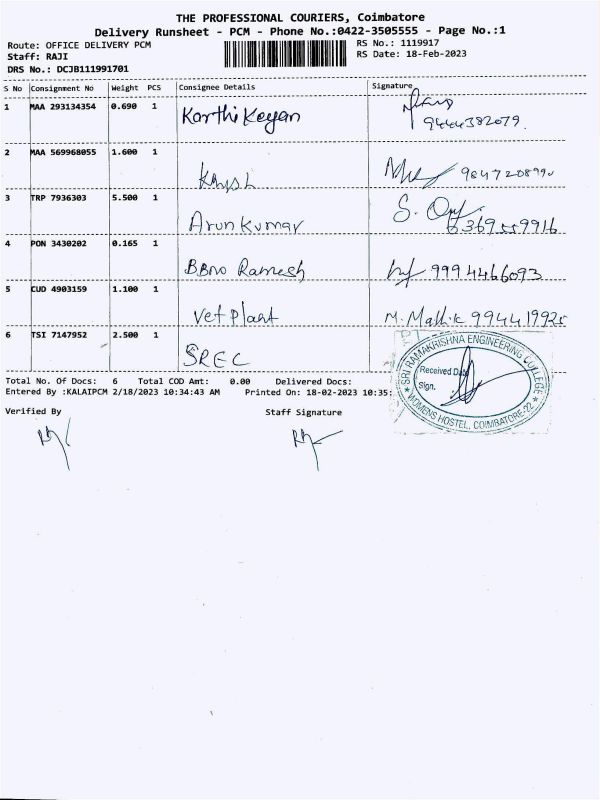 THE PROFESSIONAL COURIERS, Coimbatore
Delivery Runsheet - PCM - Phone No.:0422-3505555 - Page No.:1
Route: OFFICE DELIVERY PCM
Staff: RAJI
DRS No.: DCJB111991701
RS No.: 1119917
RS Date: 18-Feb-2023
S No Consignment No Weight PCS Consignee Details Signature
1 MAA 293134354 0.690 1 Karthi Keyan
9444382079.
2 MAA 569968055 1.600 1
3 TRP 7936303 5.500 1 Arun Kumar
6369559916
4 PON 3430202 0.165 1 Ramesh 9994466093
5 CUD 4903159 1.100 1 Vet Plant M. 994419925
6 TSI 7147952 2.500 1 SREC
SRI RAMAKRISHNA ENGINEERING COLLEGE
Received
Sign.
WOMENS HOSTEL, COIMBATORE-22
Total No. Of Docs: 6 Total COD Amt: 0.00 Delivered Docs:
Entered By :KALAIPCM 2/18/2023 10:34:43 AM Printed On: 18-02-2023 10:35:
Verified By Staff Signature